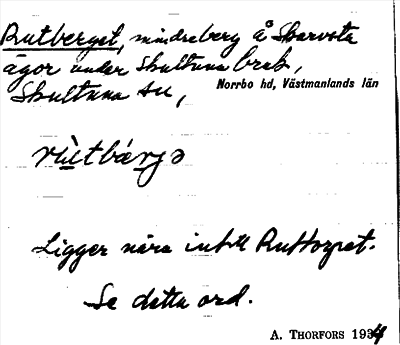 Rutberget, mindre berg å Skarvsta
ägor under Skultuna bruk,
Skultuna sn,
Norrbo hd, Västmanlands län
rùtbárjə
Ligger nära intill Ruttorpet.
Se detta ord.
A. THORFORS 1934